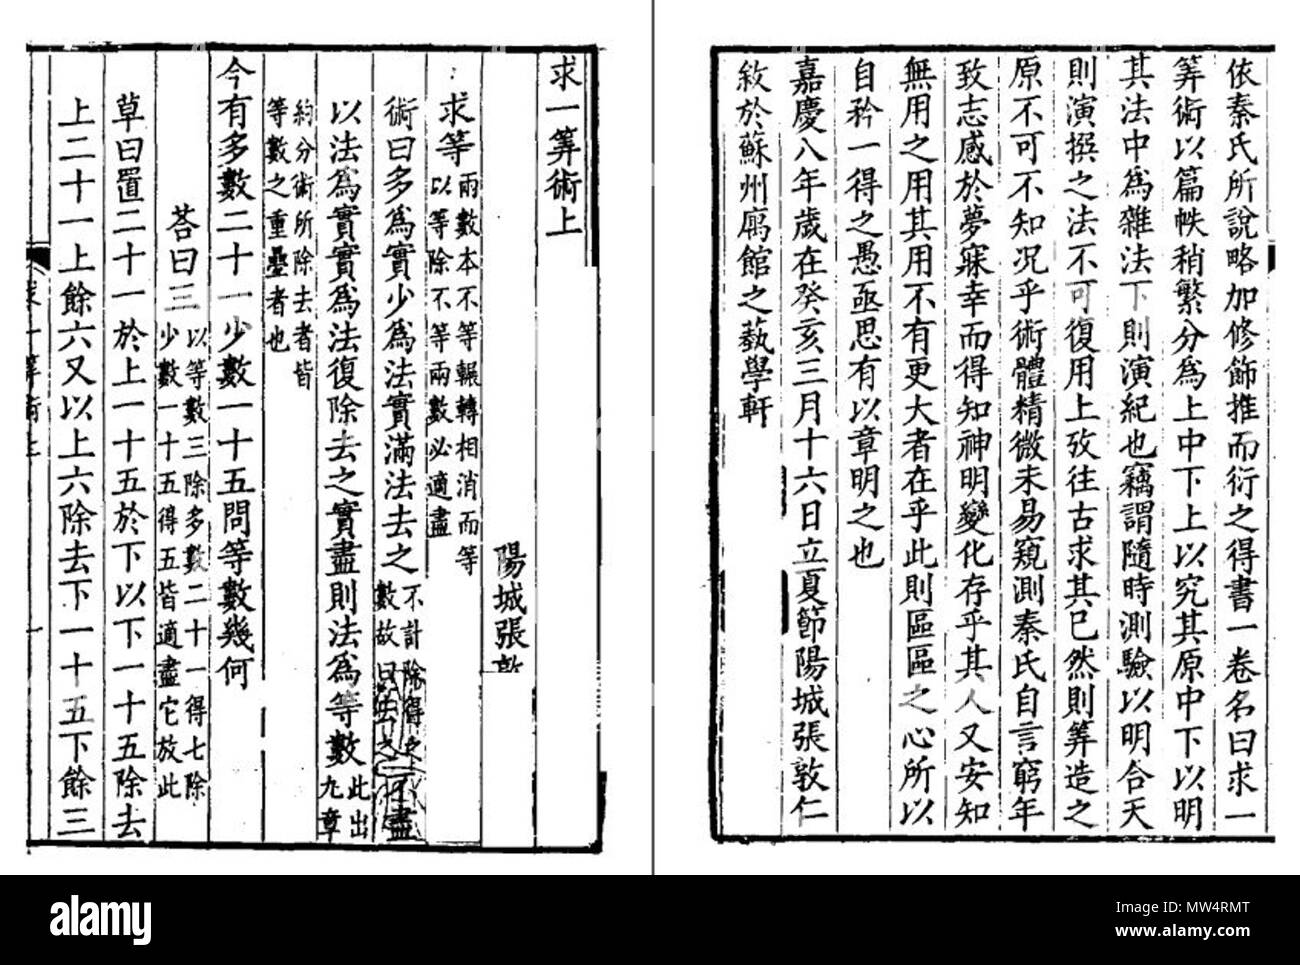 依秦氏所說略加修飾推而衍之得書一卷名曰求一
筭術以篇帙稍繁分為上中下上以究其原中下以明
其法中為雜法下則演紀也竊謂隨時測驗以明合天
則演撰之法不可復用上攷往古求其已然則筭造之
原不可不知况乎術體精微未易窺測秦氏自言窮年
致志感於夢寐幸而得知神明變化存乎其人又安知
無用之用其用不有更大者在乎此則區區之心所以
自矜一得之愚亟思有以章明之也
嘉慶八年歲在癸亥三月十六日立夏節陽城張敦仁
敘於蘇州廨館之蓺學軒
求一筭術上
陽城張敦
求等
兩數本不等輾轉相消而等
以等除不等兩數必適盡
術曰多為實少為法實滿法去之
不計除得之
數故曰去之不盡
以法為實實為法復除去之實盡則法為等數
此出
九章
約分術所除去者皆
等數之重疊者也
今有多數二十一少數一十五問等數幾何
荅曰三
以等數三除多數二十一得七除
少數一十五得五皆適盡它放此
草曰置二十一於上一十五於下以下一十五除去
上二十一上餘六又以上六除去下一十五下餘三
求一筭術上
一
alamy
Image ID: MW4RMT
www.alamy.com